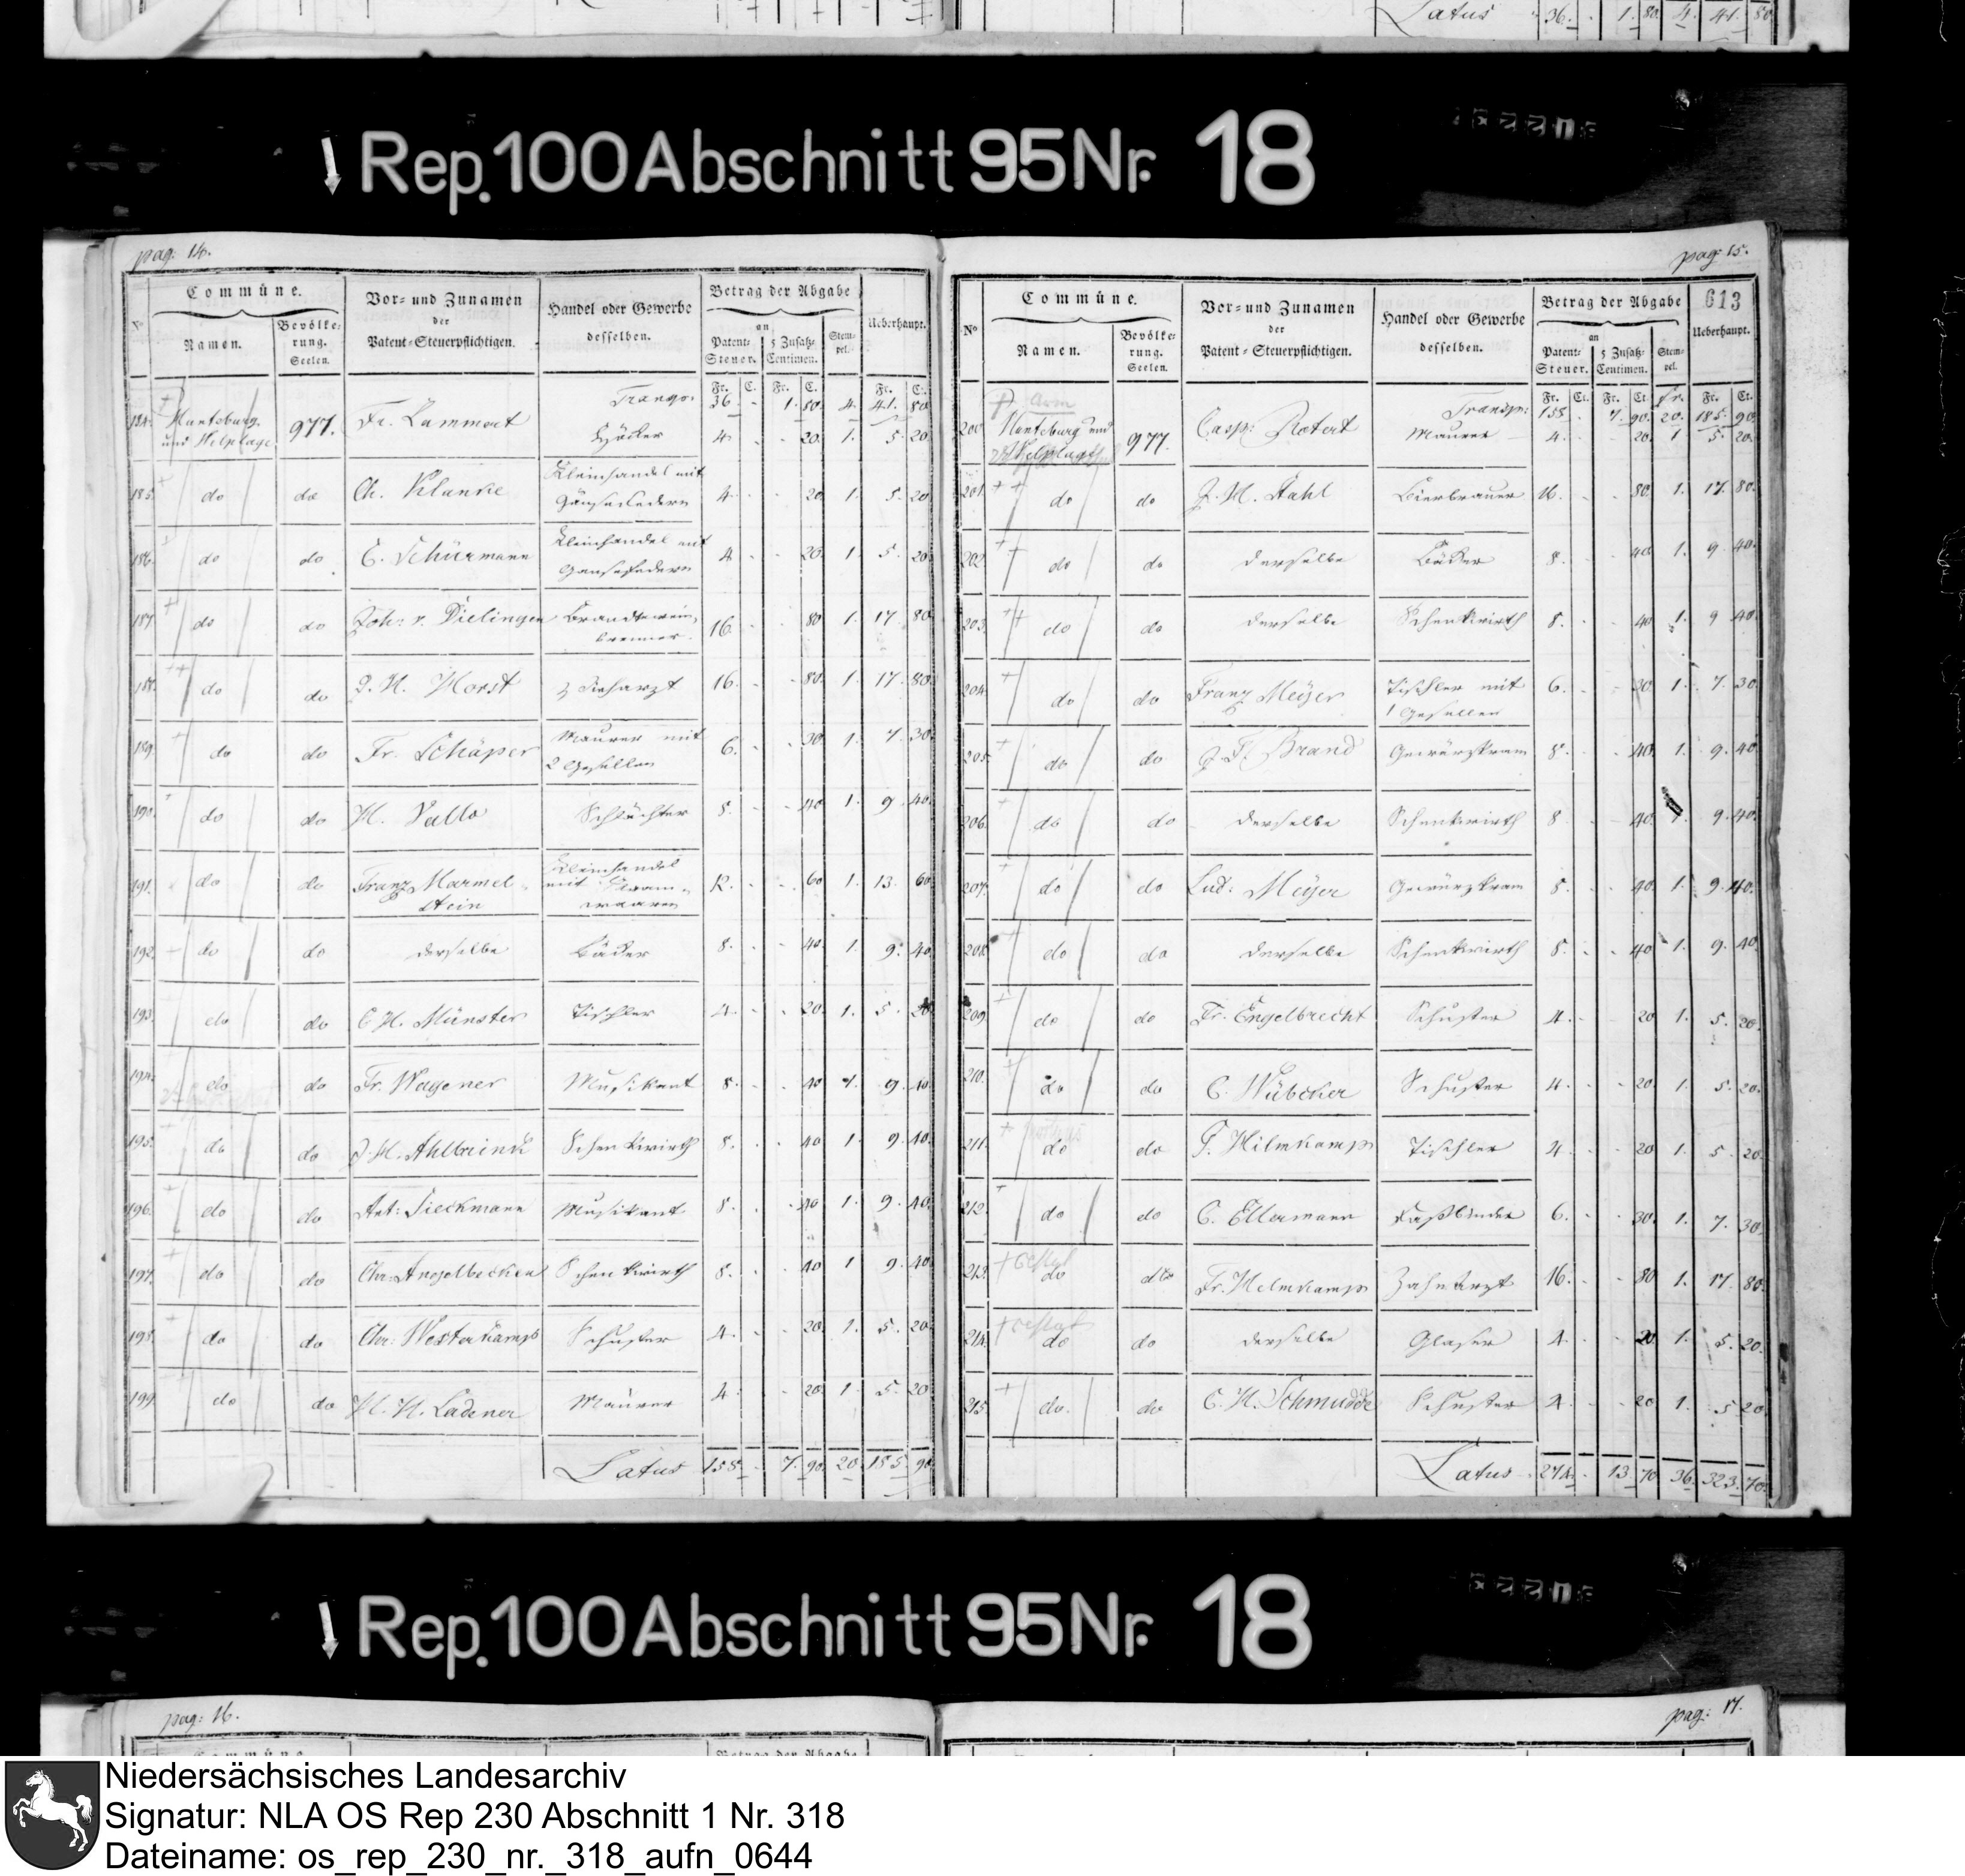 Latus 36. - 1. 80. 4. 41. 80.
Rep. 100 Abschnitt 95 Nr. 18
pag: 14.
No
Commüne.
Namen.
Bevölke-
rung.
Seelen.
Vor- und Zunamen
der
Patent-Steuerpflichtigen.
Handel oder Gewerbe
desselben.
Betrag der Abgabe
an
Patent-
Steuer.
5 Zusatz-
Centimen.
Stem-
pel.
Ueberhaupt.
Fr. C. Fr. C. Fr. C.
Transp: 36 - 1. 80. 4. 41. 80
184. Hunteburg und Welplage 977. Fr. Lammert Höcker 4. - - 20. 1. 5. 20
185. do do Ch. Klanke Kleinhandel mit Gänsefedern 4. - - 20. 1. 5. 20
186. do do C. Schürmann Kleinhandel mit Gansefedern 4. - - 20. 1. 5. 20
187. do do Joh: v. Dielingen Brandtwein-brenner. 16. - - 80 1. 17. 80
188. do do J. H. Horst Zieharzt 16. - - 80. 1. 17. 80
189. do do Fr. Schäper Maurer mit 2 Gesellen 6. - - 30 1. 7. 30
190. do do H. Schlächter 8. - - 40 1. 9. 40.
191. do do Franz Marmel-stein Kleinhandel mit waaren 12. - - 60 1. 13. 60
192. do do derselbe Bäcker 8. - - 40 1. 9. 40
193. do do C. H. Münster Tischler 4. - - 20 1. 5. 20
194. do do Fr. Wagener Musikant 8. - - 40 1. 9. 40
195. do do J. H. Ahlbrink Schenkwirth 8. - - 40 1. 9. 40.
196. do do Ant: Sieckmann Musikant 8. - - 40 1. 9. 40.
197. do do Chr. Angelbecken Schenkwirth 8. - - 40 1 9. 40
198. do do Chr. Westerkamp Schuster 4. - - 20. 1. 5. 20
199. do do H. H. Ladener Maurer 4. - - 20. 1. 5. 20
Latus 158. - 7. 90. 20. 185. 90
pag: 15.
613
No
Commüne.
Namen.
Bevölke-
rung.
Seelen.
Vor- und Zunamen
der
Patent-Steuerpflichtigen.
Handel oder Gewerbe
desselben.
Betrag der Abgabe
an
Patent-
Steuer.
5 Zusatz-
Centimen.
Stem-
pel.
Ueberhaupt.
Fr. Ct. Fr. Ct. Fr. Fr. Ct.
Transp: 158 - 7. 90. 20. 185. 90
200 Hunteburg und Welplage 977. Casp: Rotert Maurer 4. - - 20. 1 5. 20.
201. do do J. H. Stahl Bierbrauer 16. - - 80. 1. 17. 80.
202. do do derselbe Bäcker 8. - - 40 1. 9. 40.
203. do do derselbe Schenkwirth 8. - - 40 1. 9 40.
204. do do Franz Meÿer Tischler mit 1 Gesellen 6. - - 30. 1. 7. 30
205. do do J. F. Brand Gewürzkram 8. - - 40. 1. 9. 40
206. do do derselbe Schenkwirth 8 - - 40. 1. 9. 40.
207. do do Lud: Meÿer Gewürzkram 8. - - 40. 1. 9. 40.
208. do do derselbe Schenkwirth 8. - - 40 1. 9. 40
209 do do Fr. Engelbrecht Schuster 4. - - 20 1. 5. 20.
210. do do C. Wübcker Schuster 4. - - 20. 1. 5. 20.
211. do do F. Hilmkamp Tischler 4. - - 20 1. 5. 20.
212. do do C. Ellermann Faßbinder 6. - - 30. 1. 7. 30
213. do do Fr. Helmkamp Zahnarzt 16. - - 80 1. 17. 80.
214. do do derselbe Glaser 4. - - 20 1. 5. 20.
215. do. do C. H. Schmudde Schuster 4. - - 20 1. 5 20.
Latus 274. - 13 70 36. 323. 70.
Rep. 100 Abschnitt 95 Nr. 18
pag: 16.
pag: 17.
Commüne
Betrag der Abgabe
Niedersächsisches Landesarchiv
Signatur: NLA OS Rep 230 Abschnitt 1 Nr. 318
Dateiname: os_rep_230_nr._318_aufn_0644